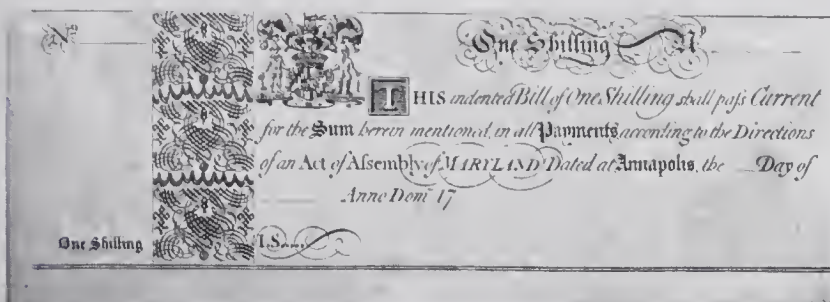 Nº
One Shilling Nº
THIS indented Bill of One Shilling shall paſs Current
for the Sum herein mentioned, in all Payments according to the Directions
of an Act of Aſsembly of MARYLAND Dated at Annapolis, the Day of
Anno Domⁱ 17
One Shilling
I.S